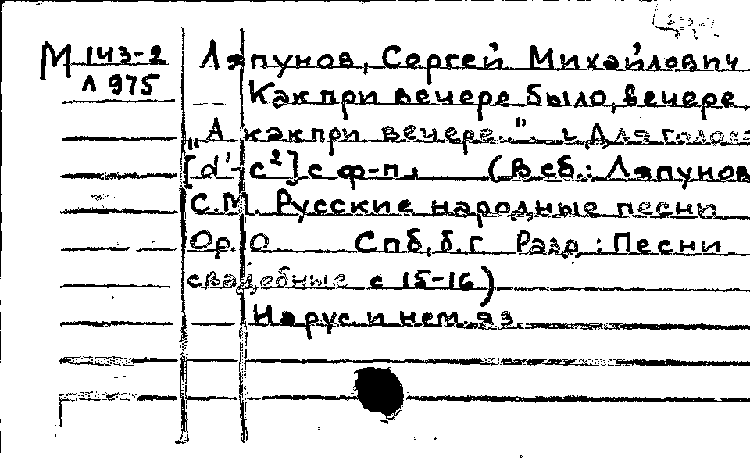 М 143-2 Ляпунов, Сергей Михайлович
Л 975 Как при вечере было, вечере,
"А как при вечере..". Для голоса
[d'-c²] с ф-п. (В сб.: Ляпунов
С.М. Русские народные песни
Ор. 10 Спб, б.г Разд: Песни
свадебные с 15-16)
На рус и нем. яз.